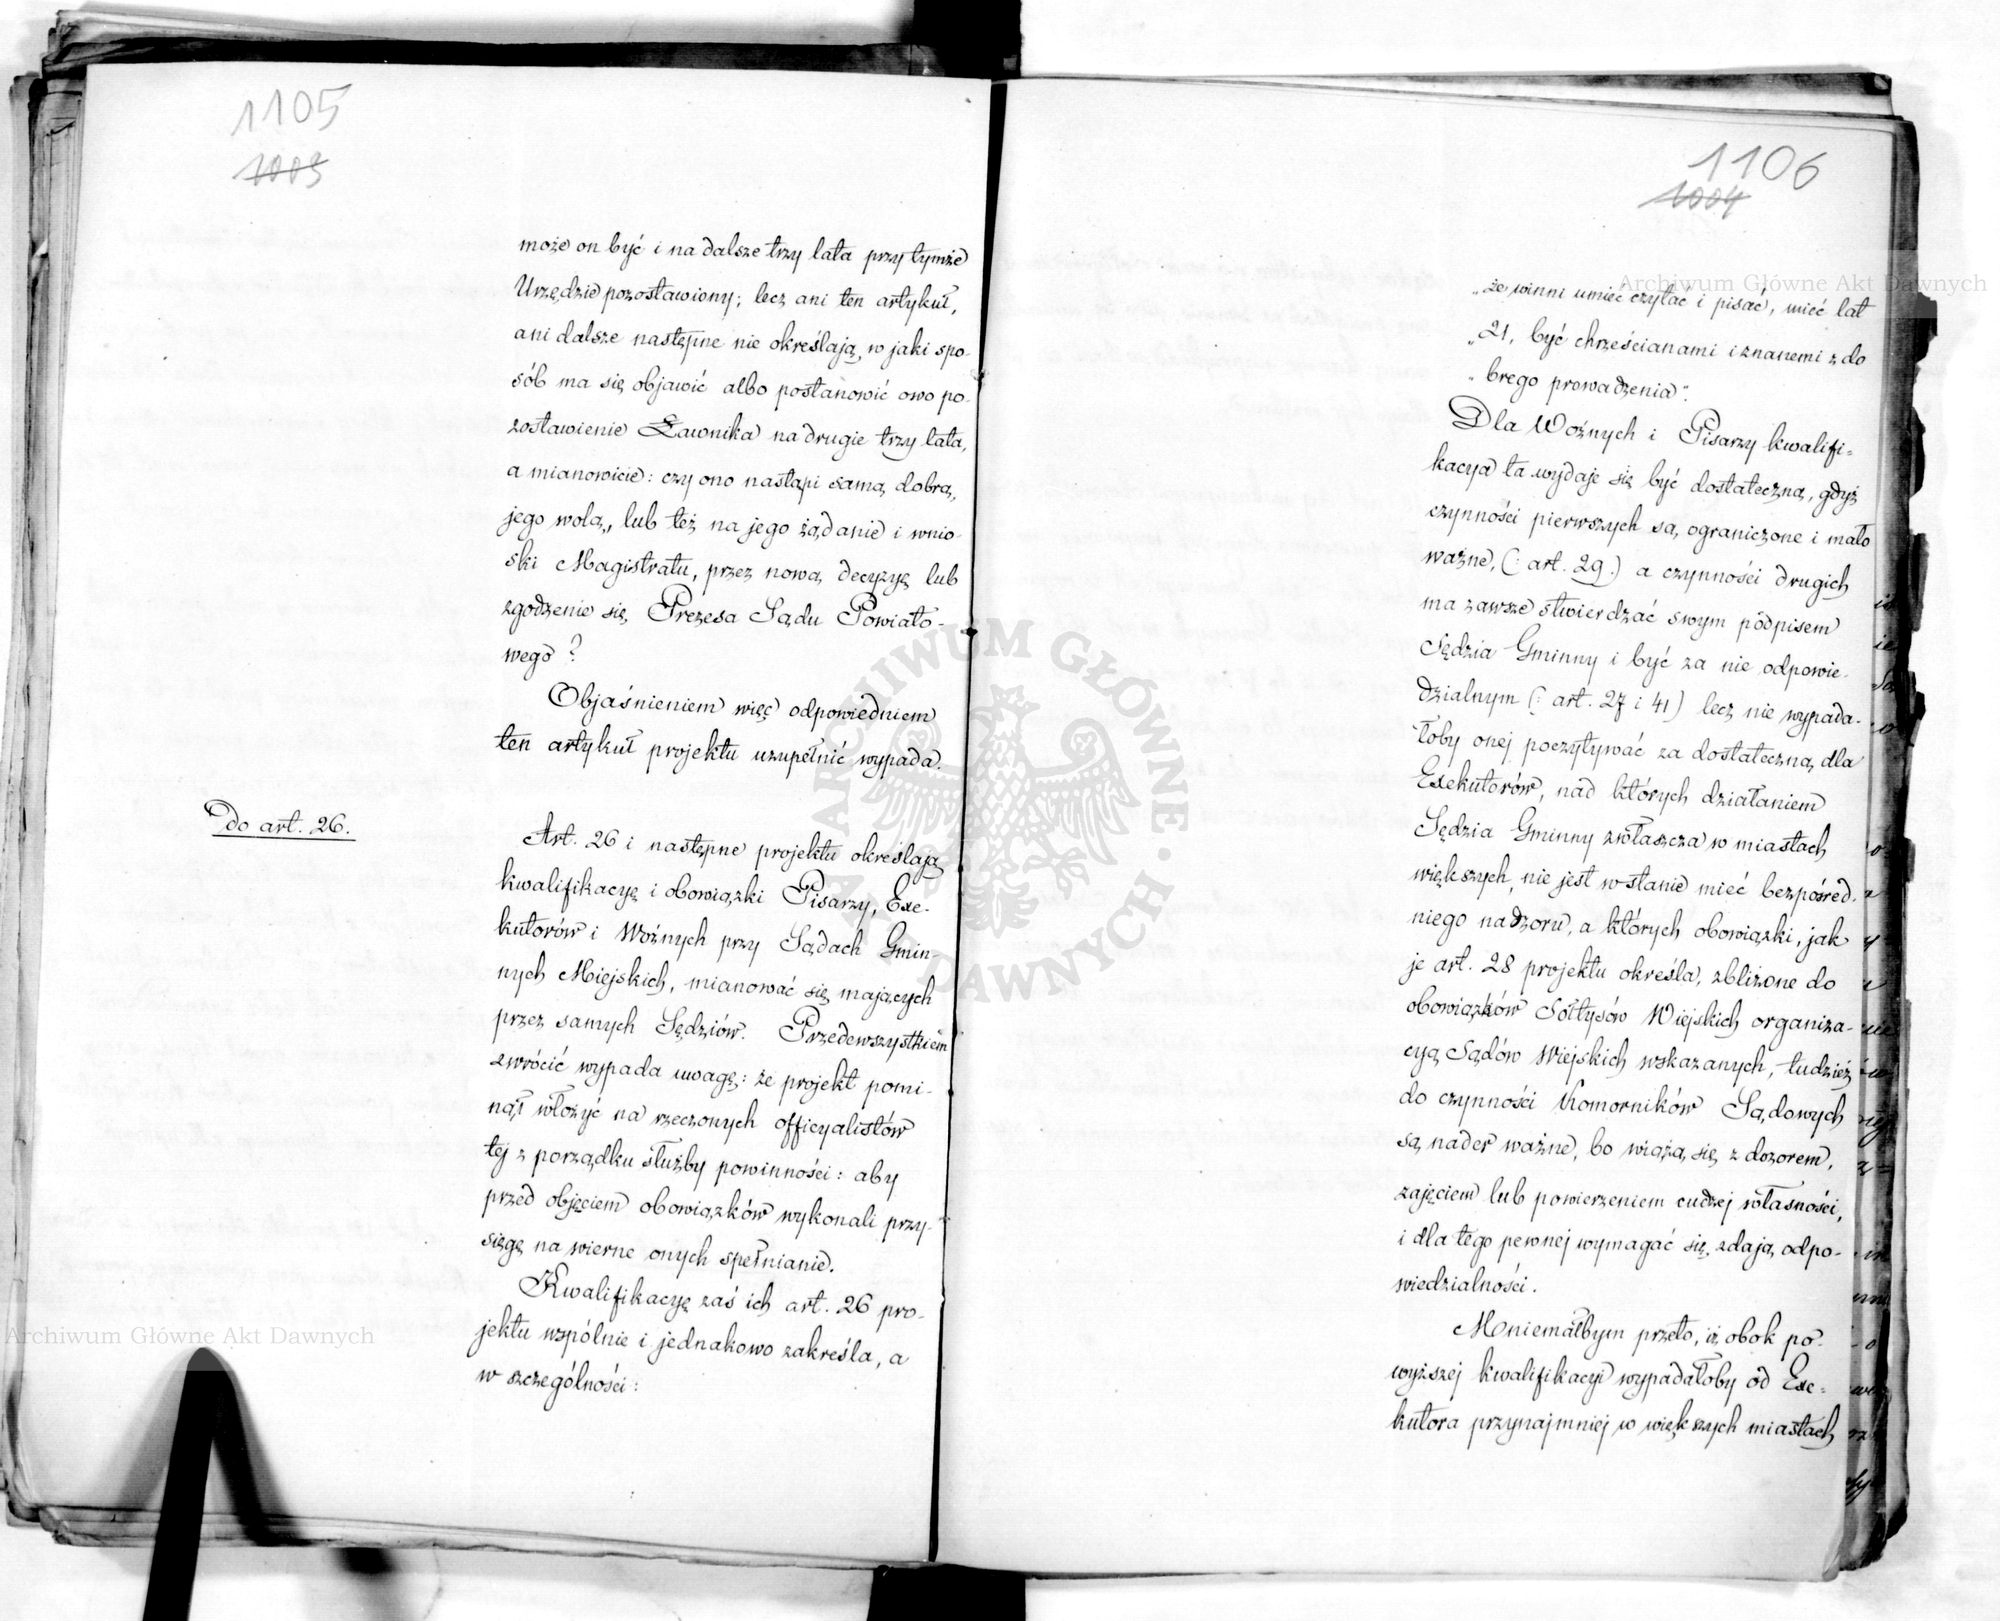 1105
1003
może on być i na dalsze trzy lata przy tymże
Urzędzie pozostawiony; lecz ani ten artykuł,
ani dalsze następne nie określają, w jaki spo-
sób ma się objawić albo postanowić owo po-
zostawienie Ławnika na drugie trzy lata,
a mianowicie: czy ono nastąpi samą dobrą,
jego wolą, lub też na jego żądanie i wnio-
ski Magistratu, przez nową decyzyę lub
zgodzenie się Prezesa Sądu Powiato-
wego?
Objaśnieniem więc odpowiedniem
ten artykuł projektu uzupełnić wypada.
Do art. 26.
Art. 26 i następne projektu określają
kwalifikacyę i obowiązki Pisarzy, Exe-
kutorów i Woźnych przy Sądach Gmin-
nych Miejskich, mianować się mających
przez samych Sędziów. Przedewszystkiem
zwrócić wypada uwagę: że projekt pomi-
nął włożyć na rzeczonych officyalistów
tej z porządku służby powinności: aby
przed objęciem obowiązków wykonali przy-
sięgę na wierne onych spełnianie.
Kwalifikacyę zaś ich art. 26 pro-
jektu wspólnie i jednakowo zakreśla, a
w szczególności:
1106
1004
„że winni umieć czytać i pisać, mieć lat
„21, być chrześcianami i znanemi z do
„brego prowadzenia".
Dla Woźnych i Pisarzy kwalifi-
kacya ta wydaje się być dostateczną, gdyż
czynności pierwszych są, ograniczone i mało
ważne, (: art. 29.) a czynności drugich
ma zawsze stwierdzać swym podpisem
Sędzia Gminny i być za nie odpowie-
dzialnym (: art. 27 i 41) lecz nie wypada-
łoby onej poczytywać za dostateczną dla
Exekutorów, nad których działaniem
Sędzia Gminny zwłaszcza w miastach
większych, nie jest w stanie mieć bezpośred-
niego nadzoru, a których obowiązki, jak
je art. 28 projektu określa, zbliżone do
obowiązków Sołtysów Wiejskich organiza-
cyą Sądów Wiejskich wskazanych, tudzież
do czynności Komorników Sądowych
są nader ważne, bo wiążą się z dozorem,
zajęciem lub powierzeniem cudzej własności,
i dla tego pewnej wymagać się zdają odpo-
wiedzialności.
Mniemałbym przeto, iż obok po-
wyższej kwalifikacyi wypadałoby od Exe-
kutora przynajmniej w większych miastach
ARCHIWUM GŁÓWNE AKT DAWNYCH
Archiwum Główne Akt Dawnych
Archiwum Główne Akt Dawnych